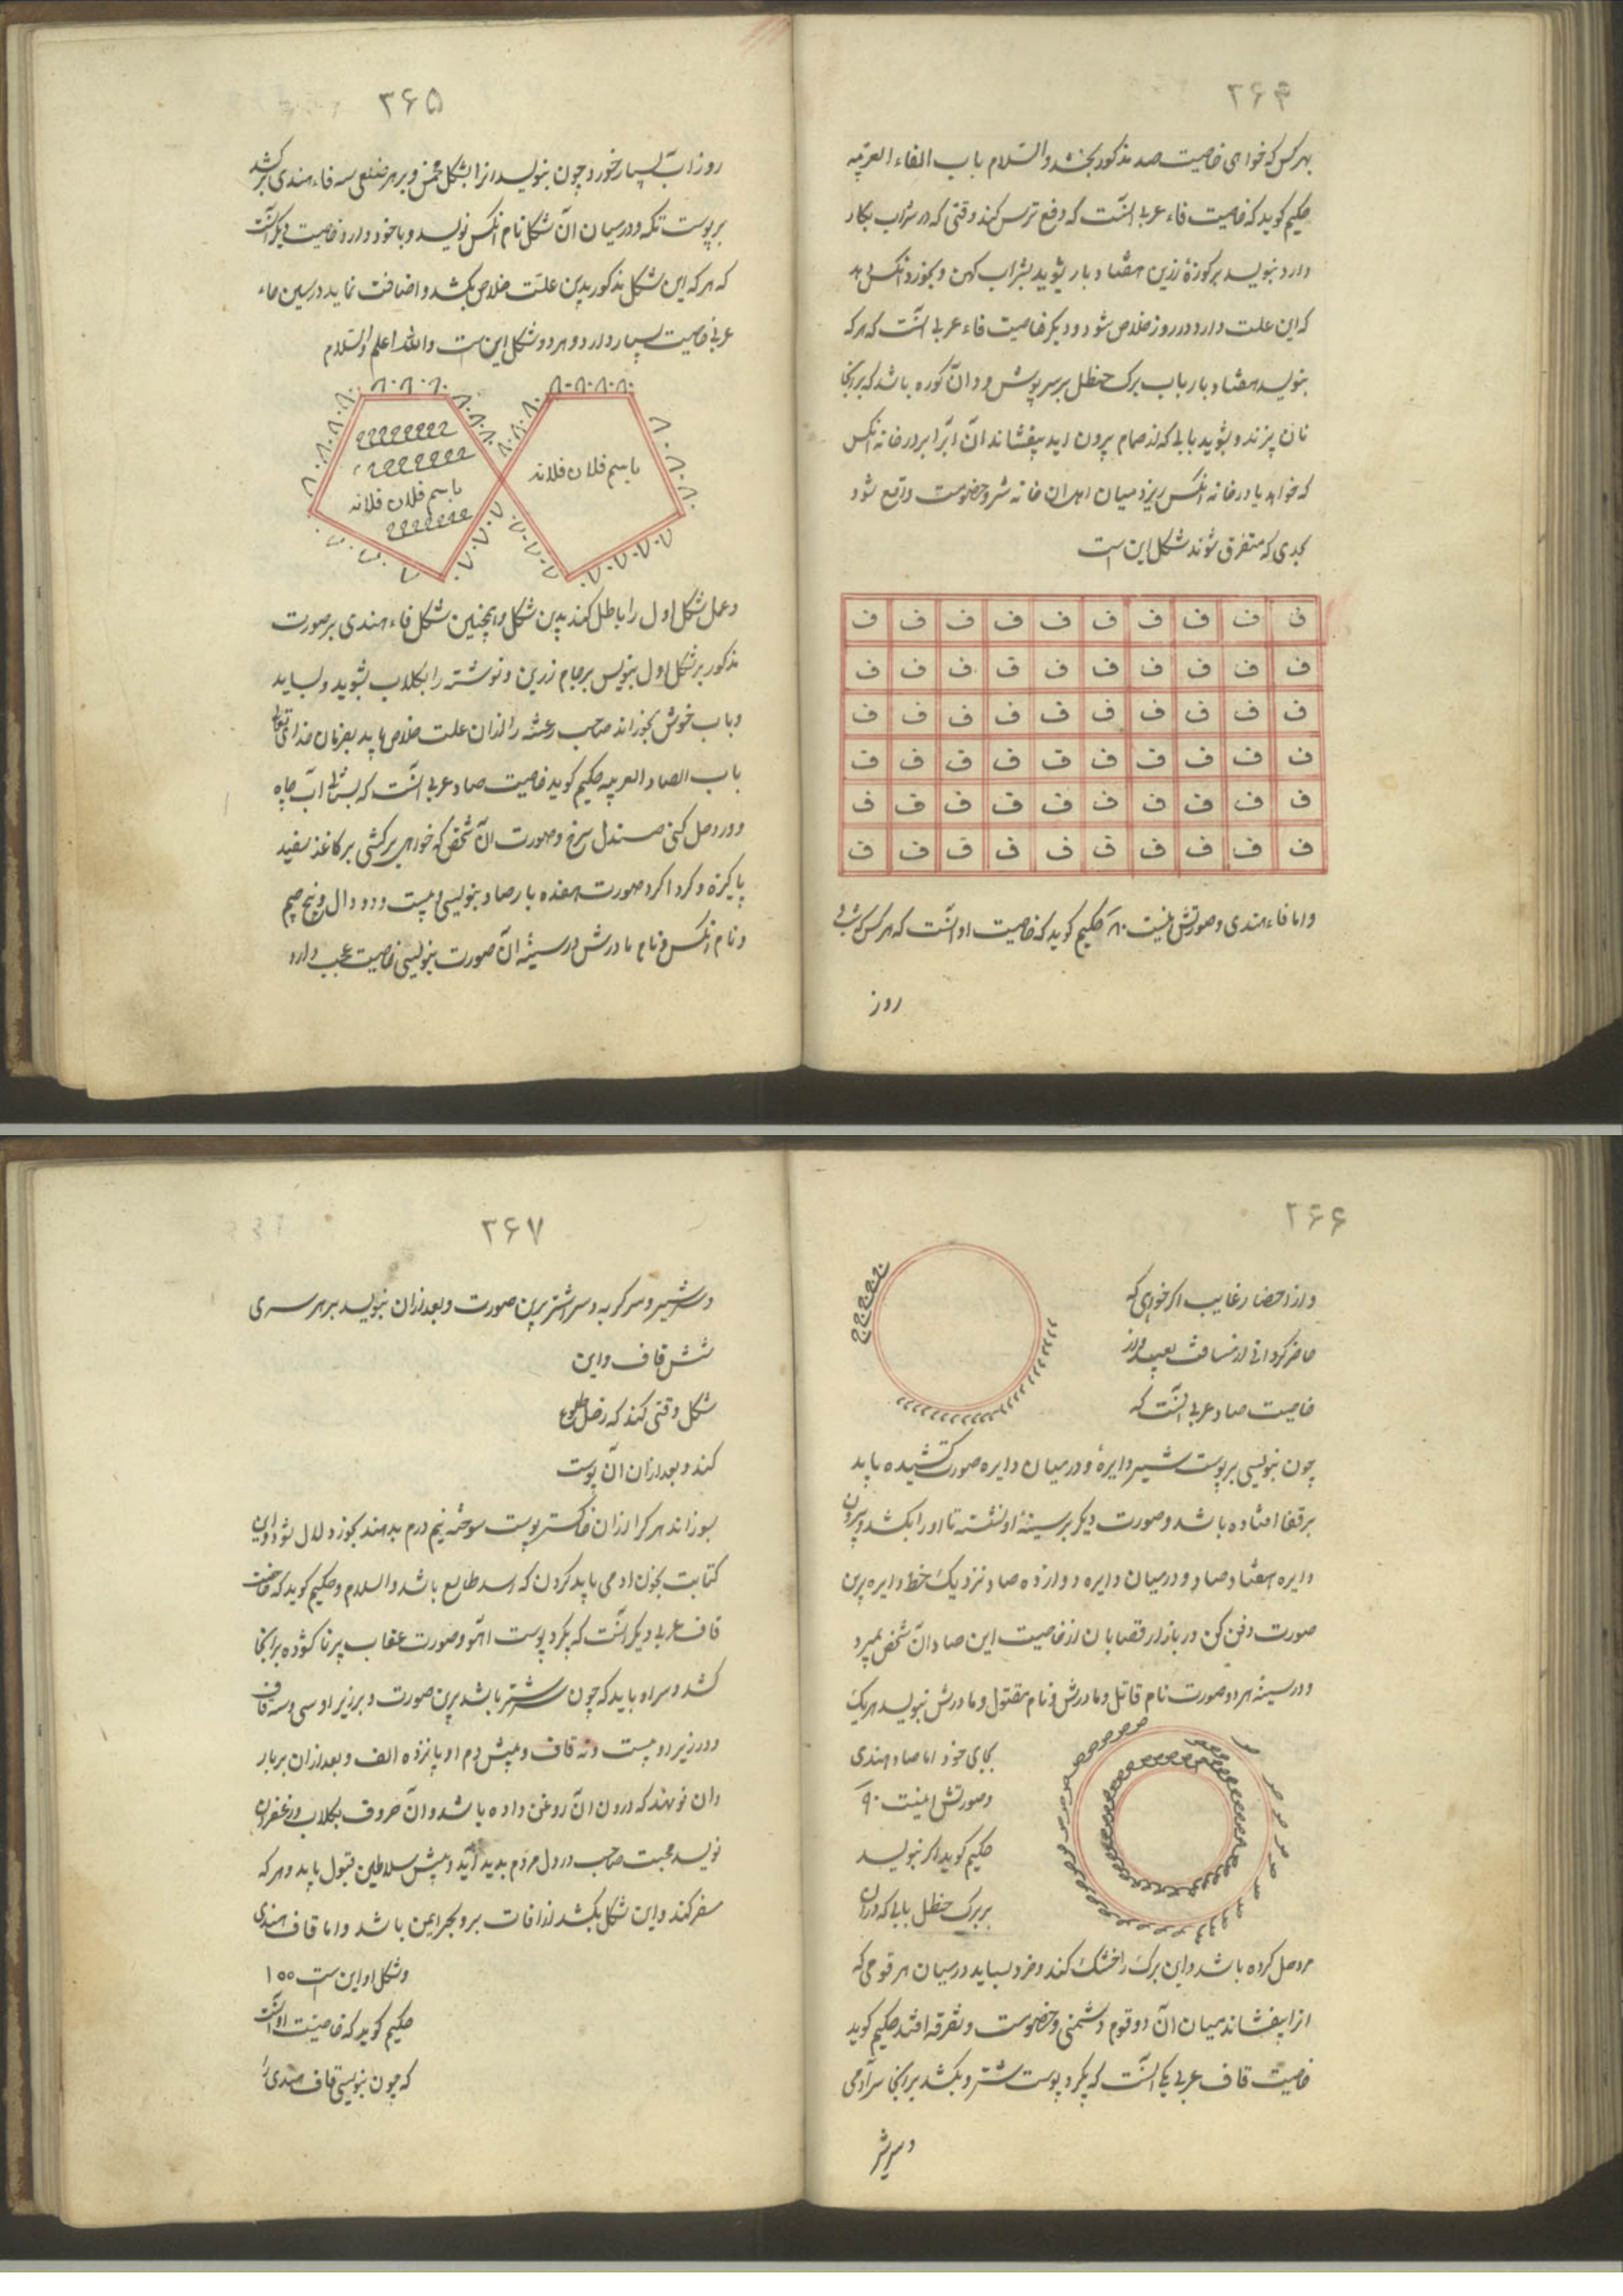 ۲۶۴
بهر کس که خواهی خاصیت صد مذکور بخشد والسلام باب الفاء العربیه
حکیم کوید که خاصیت فاء عربی آنست که دفع ترس کند وقتی که در شراب بکار
دارد بنویسد بر کوزهٔ زرین هفتاد بار بشوید بشراب کهن و بخورد آنکس دهد
که این علت دارد در روز خلاص شود و دیکر خاصیت فاء عربی آنست که هر که
بنویسد هفتاد بار باب برک حنظل بر سرپوش و دان کوره باشد که برانجا
نان پزند و بشوید بابی که از حمام بیرون اید بیفشاند آن آبرا بر در خانه آنکس
که خواهد یا در خانه آنکس ریزد میان اهل آن خانه شر و خصومت واقع شود
بحدی که متفرق شوند شکل این است
ف ف ف ف ف ف ف ف ف ف
ف ف ف ف ف ف ف ف ف ف
ف ف ف ف ف ف ف ف ف ف
ف ف ف ف ف ف ف ف ف ف
ف ف ف ف ف ف ف ف ف ف
ف ف ف ف ف ف ف ف ف ف
واما فاء هندی وصورتش اینست ۸۰ حکیم کوید که خاصیت او آنست که هر کس که شب
روز
۲۶۵
روز آب بسیار خورد چون بنویسد انرا بشکل مخمس و بر هر ضلعی سه فاء هندی برکشد
بر پوست تکه و در میان آن شکل نام آنکس نویسد و با خود دارد خاصیت دیکر آنست
که هر که این شکل مذکور بدین علت خلاص بکشد و اضافت نماید درسین ماء
عربی خاصیت بسیار دارد و هر دو شکل این است والله اعلم والسلام
باسم فلان فلانه
باسم فلان فلانه
وعمل شکل اول را باطل کند بدین شکل و همچنین شکل فاء هندی بر صورت
مذکور بر شکل اول بنویس بر جام زرین و نوشته را بکلاب بشوید و بساید
وباب خوش بخوراند صاحب رعشه را از ان علت خلاص یابد بفرمان خدای تعالی
باب الصاد العربیه حکیم کوید خاصیت صاد عربی آنست که بستانی آب چاه
و در وحل کنی صندل سرخ و صورت آن شخص که خواهی برکشی بر کاغذ سفید
پاکیزه و کردا کرد صورت هفده بار صاد بنویسی و بیست و دو دال و پنج جیم
و نام آنکس و نام مادرش در سینهٔ آن صورت بنویسی خاصیت عجب دارد
۲۶۶
و از احضار غایب اکر خواهی که
حاضر کردانی از مسافت بعید و از
خاصیت صاد عربی آنست که
چون بنویسی بر پوست شیر دایرهٔ و در میان دایره صورت کشیده باید
بر قفا افتاده باشد و صورت دیکر بر سینهٔ او نشسته تا او را بکشد و بیرون
دایره هفتاد صاد و در میان دایره دوازده صاد نزدیک خط دایره برین
صورت دفن کن در بازار قصابان از خاصیت این صاد آن شخص بمیرد
و در سینه هر دو صورت نام قاتل و مادرش و نام مقتول و مادرش بنویسد هریک
بجای خود اما صاد هندی
وصورتش اینست ۹۰
حکیم کوید اکر بنویسد
بر برک حنظل بابی که در ان
مر وحل کرده باشد و این برک را خشک کند و خرد بساید در میان هر قومی که
انرا بیفشاند میان آن دو قوم دشمنی و خصومت و تفرقه افتد حکیم کوید
خاصیت قاف عربی یکی آنست که بکیرد پوست شتر و بکشد برانجا سر آدمی
و سر شیر
۲۶۷
و سر شیر و سر کربه و سر اشتر برین صورت و بعد از ان بنویسد بر هر سری
شش قاف و این
شکل وقتی کند که زحل طلوع
کند و بعد از ان آن پوست
بسوزاند هر کرا از ان خاکستر پوست سوخته نیم درم بدهند بخورد لال شود و این
کتابت بخون ادمی باید کردن که اسد طالع باشد والسلام و حکیم کوید که خاصیت
قاف عربی دیکر آنست که بکیرد پوست اهو و صورت عقاب پرها کشوده برانجا
کشد و سر او باید که چون سر شتر باشد برین صورت و بر زیر او سی و سه قاف
و در زیر او بیست و نه قاف و پیش دم او پانزده الف و بعد از ان بر بار
دان نو نهند که درون آن روغن داده باشد و آن حروف بکلاب و زعفران
نویسد محبت صاحب در دل مردم بدید آید و پیش سلاطین قبول یابد و هر که
سفر کند و این شکل بکشد از افات بر و بحر ایمن باشد و اما قاف هندی
و شکل او این است ۱۰۰
حکیم کوید که خاصیت او آنست
که چون بنویسی قاف هندی را